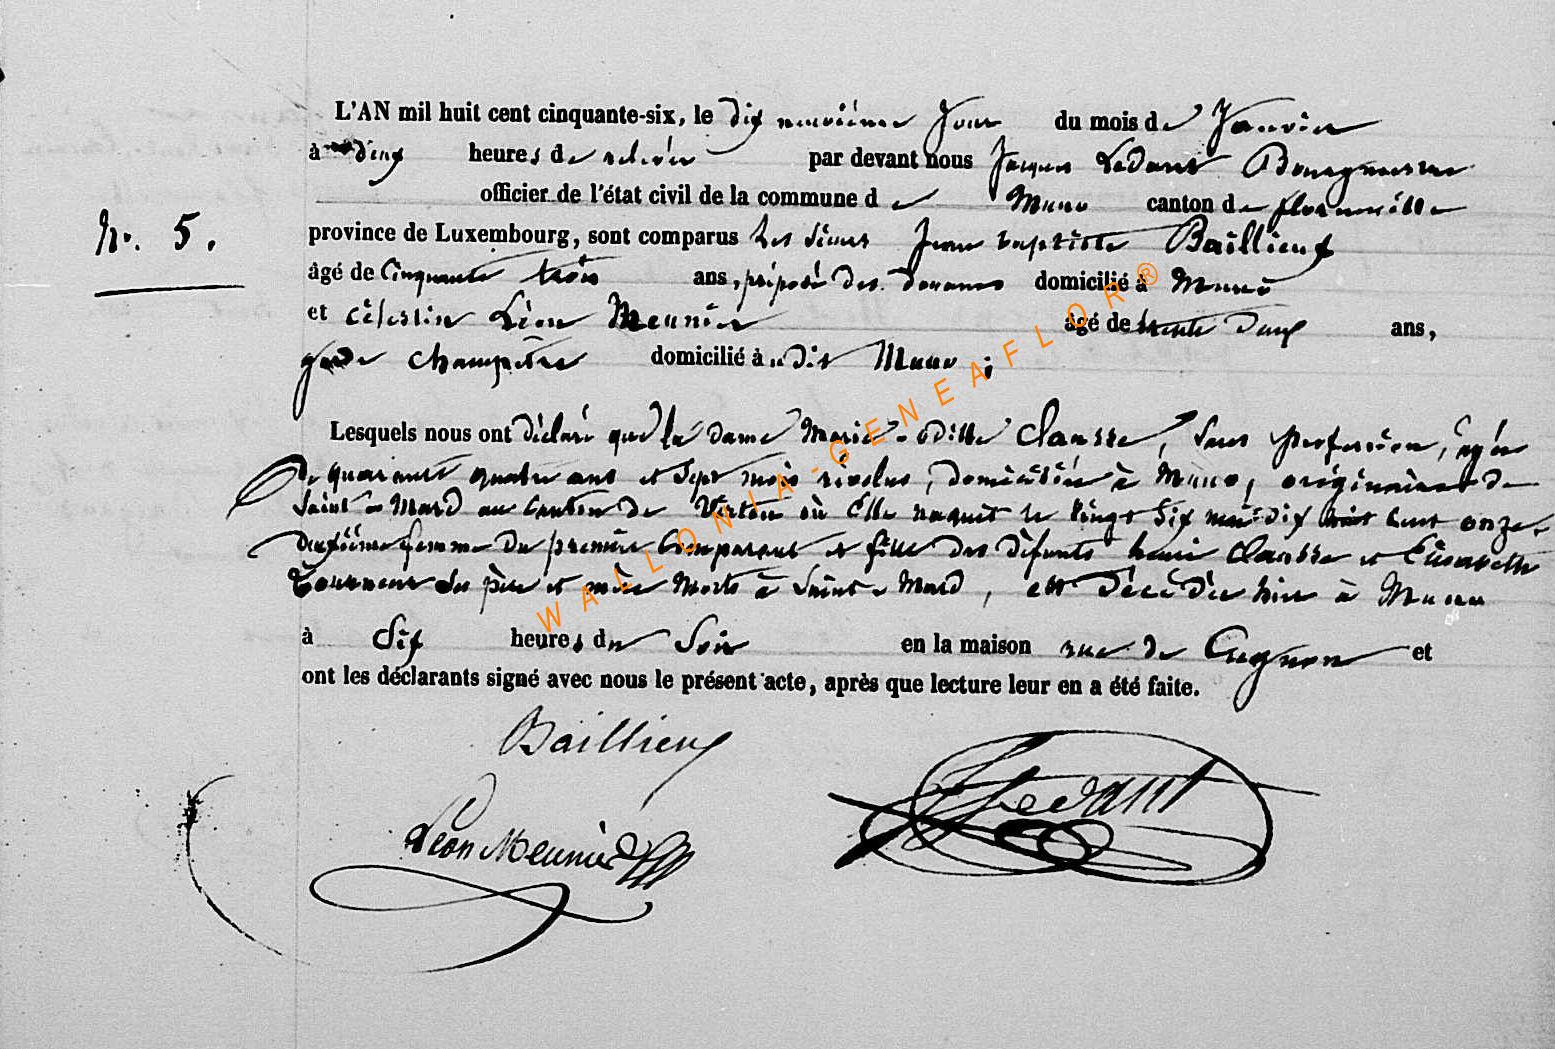 L'AN mil huit cent cinquante-six, le dix neuvième Jour du mois de Janvier
à deux heures de relevée par devant nous Jacques Ledant Bourgmestre
officier de l'état civil de la commune de Muno canton de florenville
N°. 5.
province de Luxembourg, sont comparus Les sieurs Jean baptiste Baillieux
âgé de Cinquante trois ans, préposé des douanes domicilié à Muno
et Célestin Léon Meunier âgé de trente deux ans,
garde champêtre domicilié à dit Muno ;
Lesquels nous ont déclaré que la dame Marie-odille Clausse, sans profession, agée
de quarante quatre ans et sept mois révolus, domiciliée à Muno, originaire de
Saint-Mard au Canton de Virton où Elle naquit le vingt six mai dix huit cent onze,
deuxième femme du premier Comparant et fille des défunts henri Clausse et Elisabeth
Tourneur ses père et mère morts à Saint-Mard, est décédée hier à Muno
à Six heures du Soir en la maison rue de Cugnon et
ont les déclarants signé avec nous le présent acte, après que lecture leur en a été faite.
Baillieux
Ledant
Léon Meunier
WALLONIA-GENEAFLOR®